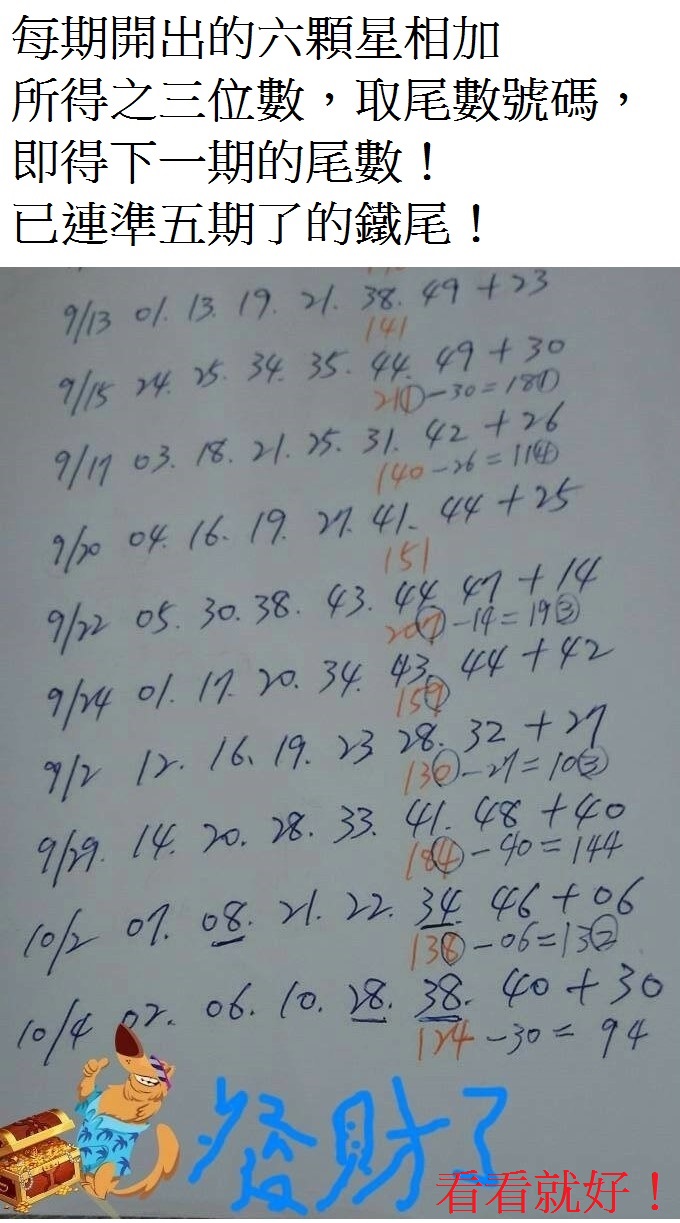 每期開出的六顆星相加
所得之三位數，取尾數號碼，
即得下一期的尾數！
已連準五期了的鐵尾！
9/13 01. 13. 19. 21. 38. 49 + 23
141
9/15 24. 25. 34. 35. 44. 49 + 30
211 - 30 = 181
9/17 03. 18. 21. 25. 31. 42 + 26
140 - 26 = 114
9/20 04. 16. 19. 27. 41. 44 + 25
151
9/22 05. 30. 38. 43. 44. 47 + 14
207 - 14 = 193
9/24 01. 17. 20. 34. 43. 44 + 42
159
9/2 12. 16. 19. 23 28. 32 + 27
130 - 27 = 103
9/29. 14. 20. 28. 33. 41. 48 + 40
184 - 40 = 144
10/2 07. 08. 21. 22. 34 46 + 06
138 - 06 = 132
10/4 02. 06. 10. 28. 38. 40 + 30
124 - 30 = 94
發財了
看看就好！